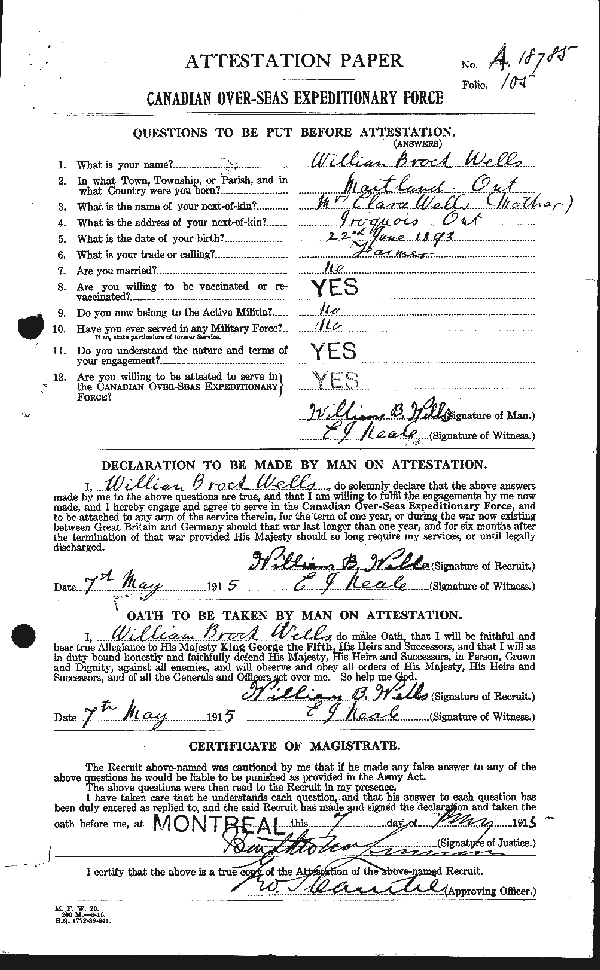 ATTESTATION PAPER
No. A. 18785
Folio. 105
CANADIAN OVER-SEAS EXPEDITIONARY FORCE
QUESTIONS TO BE PUT BEFORE ATTESTATION.
(ANSWERS)
1. What is your name? William Brock Wells
2. In what Town, Township, or Parish, and in
what Country were you born? Maitland Ont
3. What is the name of your next-of-kin? Mrs Clara Wells (Mother)
4. What is the address of your next-of-kin? Iroquois Ont
5. What is the date of your birth? 22nd June 1893
6. What is your trade or calling? Farmer
7. Are you married? No
8. Are you willing to be vaccinated or re-
vaccinated? YES
9. Do you now belong to the Active Militia? No
10. Have you ever served in any Military Force? No
If so, state particulars of former Service.
11. Do you understand the nature and terms of
your engagement? YES
12. Are you willing to be attested to serve in
the CANADIAN OVER-SEAS EXPEDITIONARY
FORCE? YES
William B. Wells (Signature of Man.)
E J Neale (Signature of Witness.)
DECLARATION TO BE MADE BY MAN ON ATTESTATION.
I, William Brock Wells, do solemnly declare that the above answers
made by me to the above questions are true, and that I am willing to fulfil the engagements by me now
made, and I hereby engage and agree to serve in the Canadian Over-Seas Expeditionary Force, and
to be attached to any arm of the service therein, for the term of one year, or during the war now existing
between Great Britain and Germany should that war last longer than one year, and for six months after
the termination of that war provided His Majesty should so long require my services, or until legally
discharged.
William B. Wells (Signature of Recruit.)
Date 7th May 1915 E J Neale (Signature of Witness.)
OATH TO BE TAKEN BY MAN ON ATTESTATION.
I, William Brock Wells, do make Oath, that I will be faithful and
bear true Allegiance to His Majesty King George the Fifth, His Heirs and Successors, and that I will as
in duty bound honestly and faithfully defend His Majesty, His Heirs and Successors, in Person, Crown
and Dignity, against all enemies, and will observe and obey all orders of His Majesty, His Heirs and
Successors, and of all the Generals and Officers set over me. So help me God.
William B. Wells (Signature of Recruit.)
Date 7th May 1915 E J Neale (Signature of Witness.)
CERTIFICATE OF MAGISTRATE.
The Recruit above-named was cautioned by me that if he made any false answer to any of the
above questions he would be liable to be punished as provided in the Army Act.
The above questions were then read to the Recruit in my presence.
I have taken care that he understands each question, and that his answer to each question has
been duly entered as replied to, and the said Recruit has made and signed the declaration and taken the
oath before me, at MONTREAL this 7 day of May 1915
(Signature of Justice.)
I certify that the above is a true copy of the Attestation of the above-named Recruit.
(Approving Officer.)
M. F. W. 23.
200 M.—8-15.
H.Q. 1772-39-841.